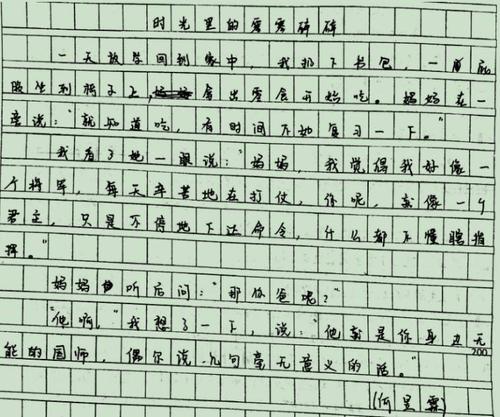 时光里的零零碎碎
一天放学回到家中，我扔下书包，一屁
股坐到椅子上，拿出零食开始吃。妈妈在一
旁说：“就知道吃，有时间不她复习一下。”
我看了她一眼说：“妈妈，我觉得我好像一
个将军，每天辛苦地在打仗，你呢，就像一个
君主，只是不停地下达命令，什么都不懂瞎指
挥。”
妈妈听后问：“那你爸呢？”
“他啊，”我想了一下，说：“他就是你身边无
能的国师，偶尔说几句毫无意义的话。”
200